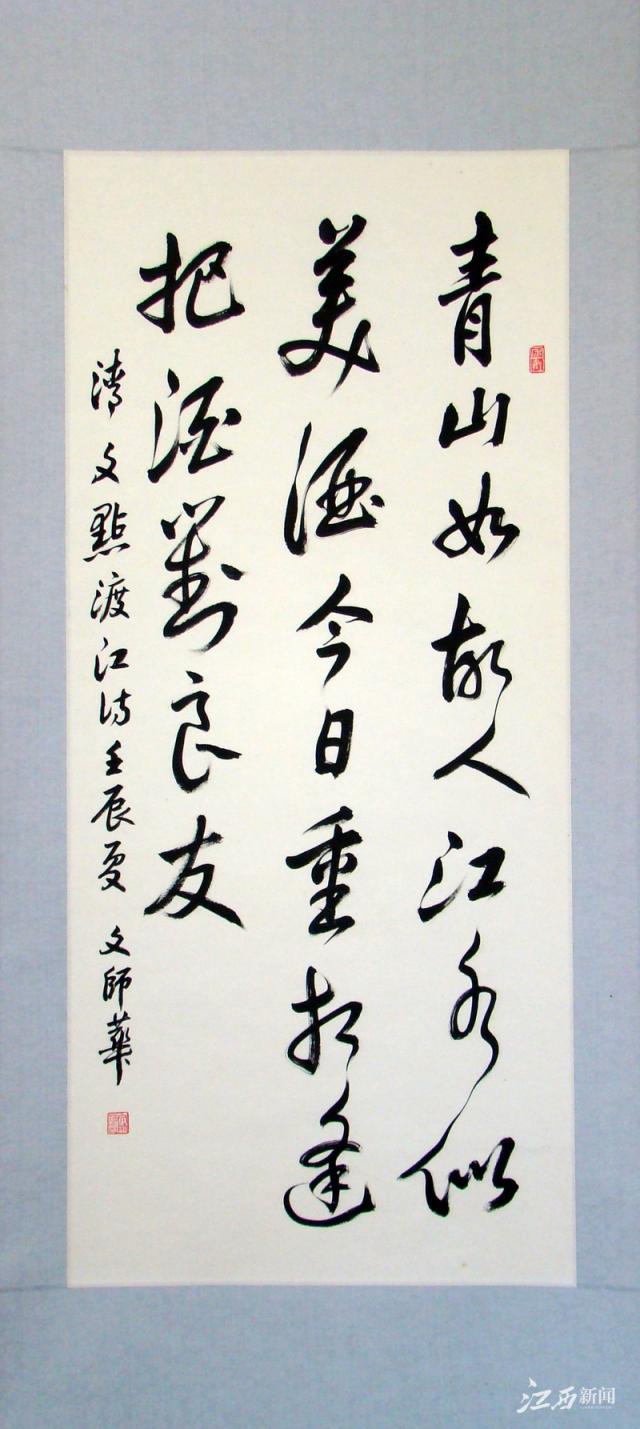 青山如故人江水似
美酒今日重相逢
把酒對良友
清文點渡江詩壬辰夏 文師華
江西新闻